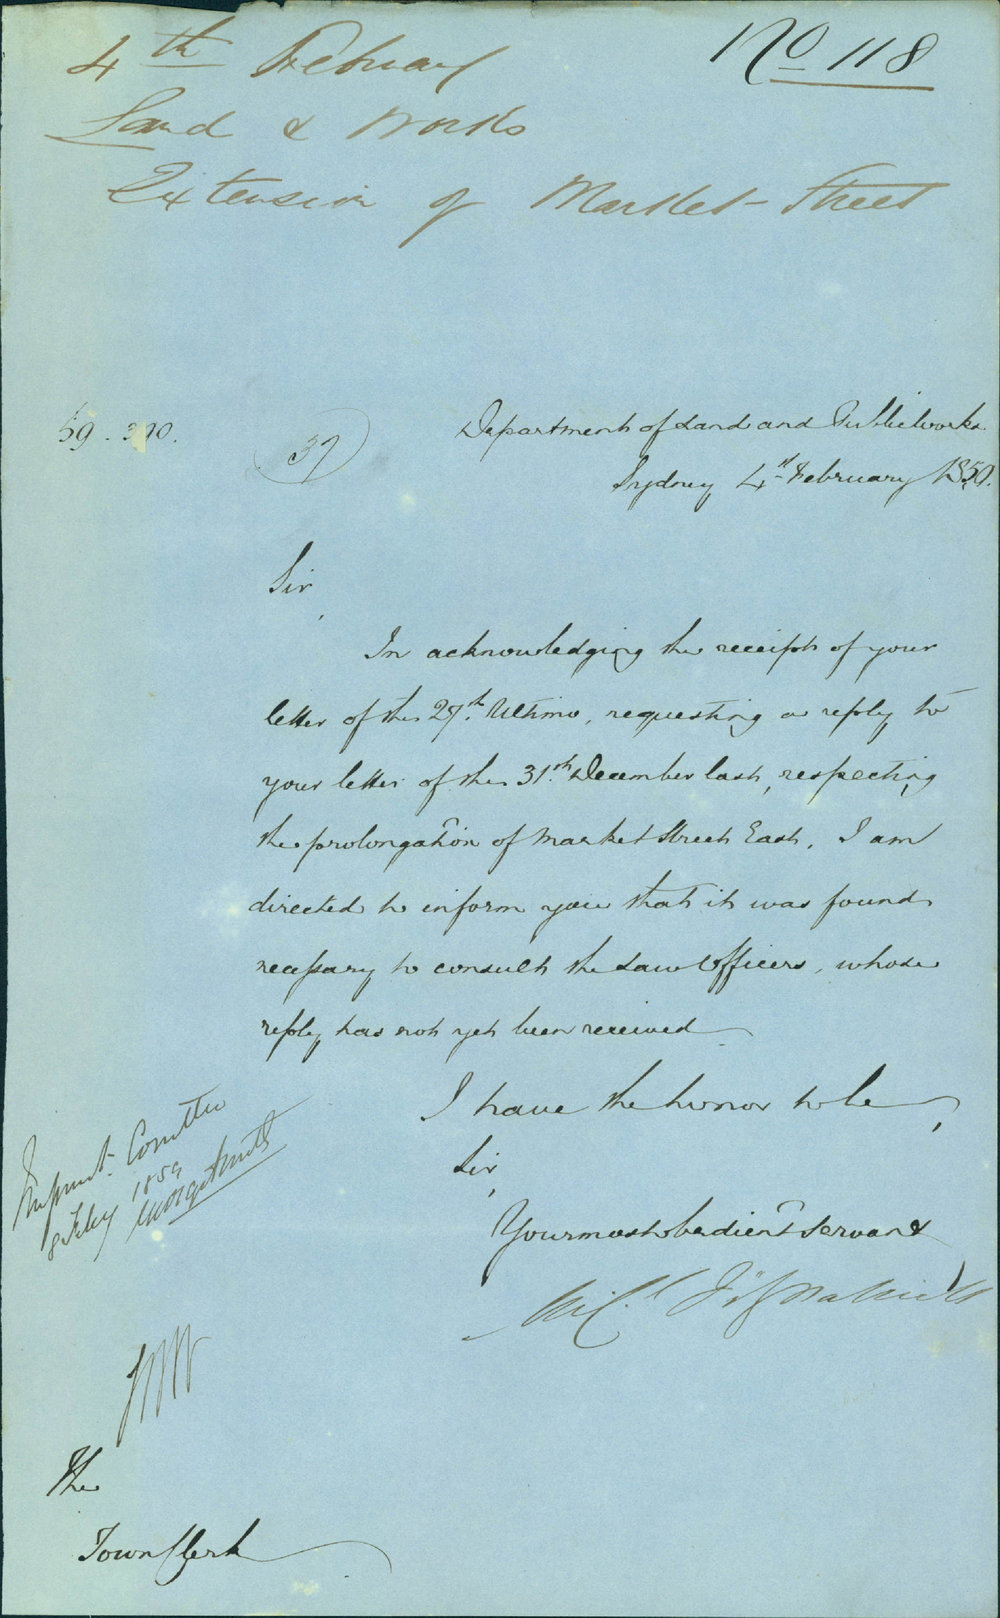 No 118
4th February
Land & Works
Extension of Market Street
59-390.
37
Department of Land and Public Works
Sydney 4th February 1859.
Sir,
In acknowledging the receipt of your
letter of the 27th. Ultimo, requesting a reply to
your letter of the 31st. December last, respecting
the prolongation of Market Street East, I am
directed to inform you that it was found
necessary to consult the Law Officers, whose
reply has not yet been received
I have the honor to be,
Sir,
Your most obedient Servant
Micl. Fitzpatrick
Improvt. Comttee
8 Feby 1859
The
Town Clerk